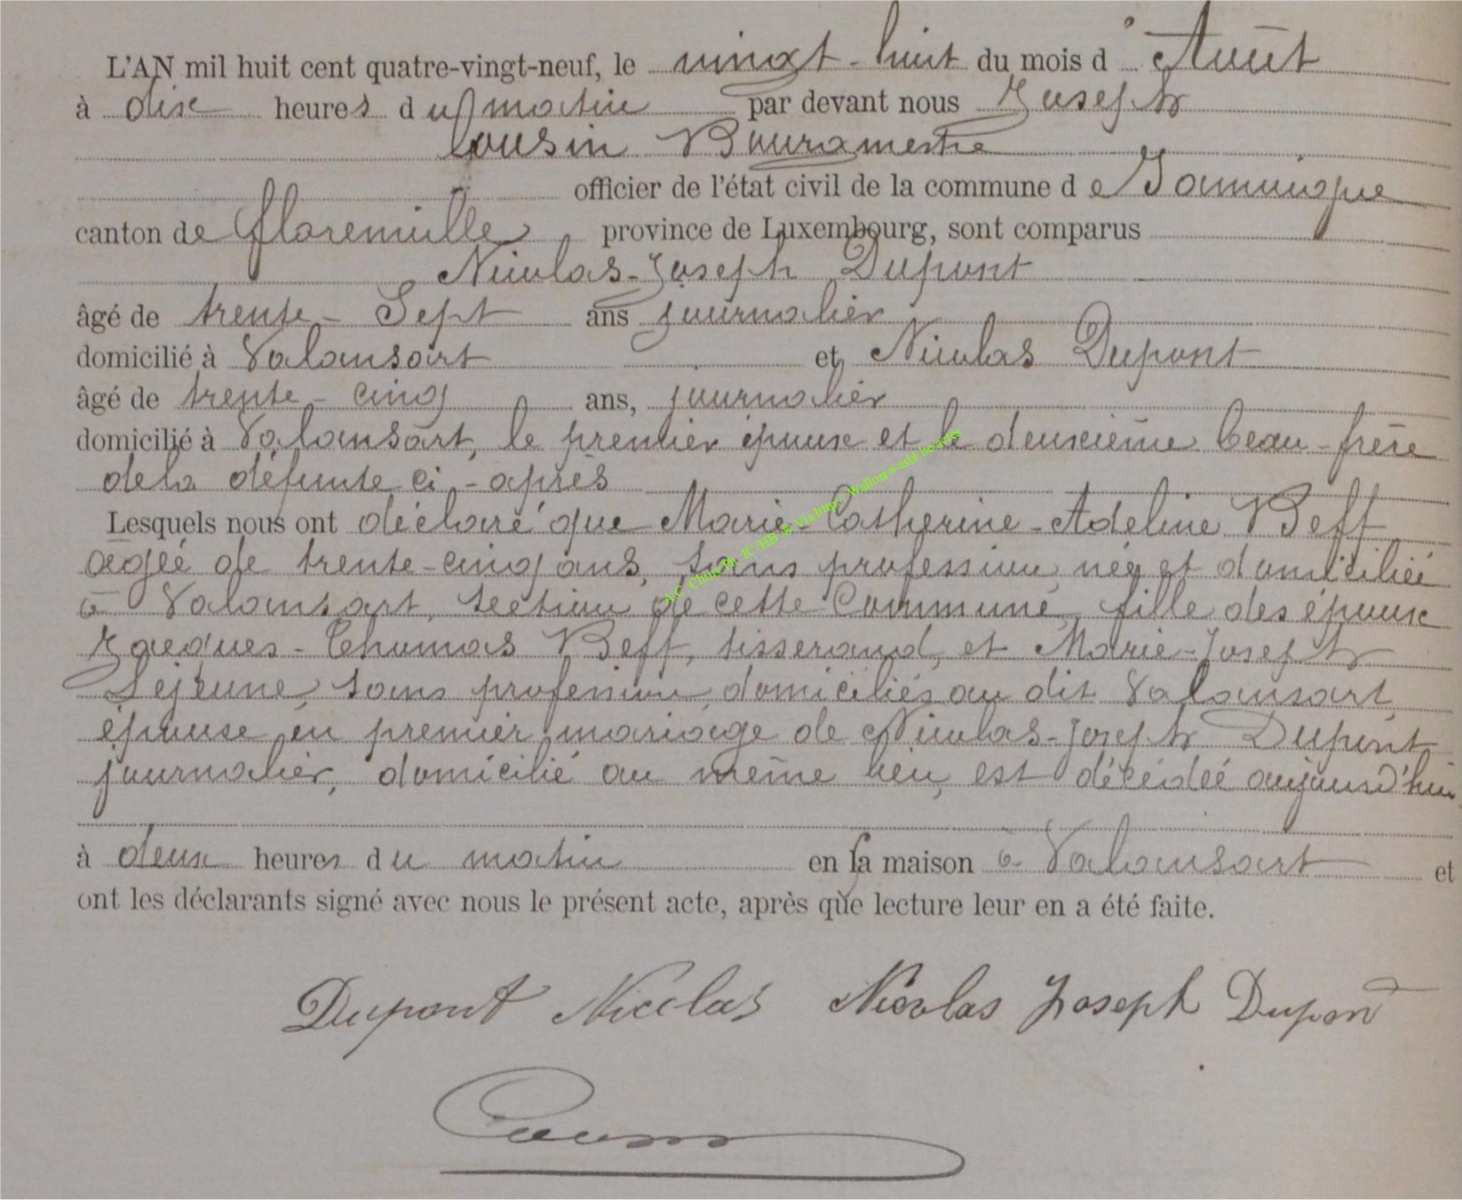 L'AN mil huit cent quatre-vingt-neuf, le vingt-huit du mois d'Août
à dix heures du matin par devant nous Joseph
Cousin Bourgmestre
officier de l'état civil de la commune de Jamoigne
canton de Florenville province de Luxembourg, sont comparus
Nicolas-Joseph Dupont
âgé de trente-Sept ans journalier
domicilié à Valansart et Nicolas Dupont
âgé de trente-cinq ans, journalier
domicilié à Valansart, le premier époux et le deuxième beau-frère
de la défunte ci-après
Lesquels nous ont déclaré que Marie-Catherine-Adeline Beff
âgée de trente-cinq ans, sans profession, née et domiciliée
à Valansart, section de cette Commune, fille des époux
Jacques-Thomas Beff, tisserand, et Marie-Joseph
Lejeune, sans profession, domiciliés au dit Valansart,
épouse en premier mariage de Nicolas-Joseph Dupont,
journalier, domicilié au même lieu, est décédée aujourd'hui
à deux heures du matin en sa maison à Valansart et
ont les déclarants signé avec nous le présent acte, après que lecture leur en a été faite.
Dupont Nicolas Nicolas Joseph Dupont
Cousin